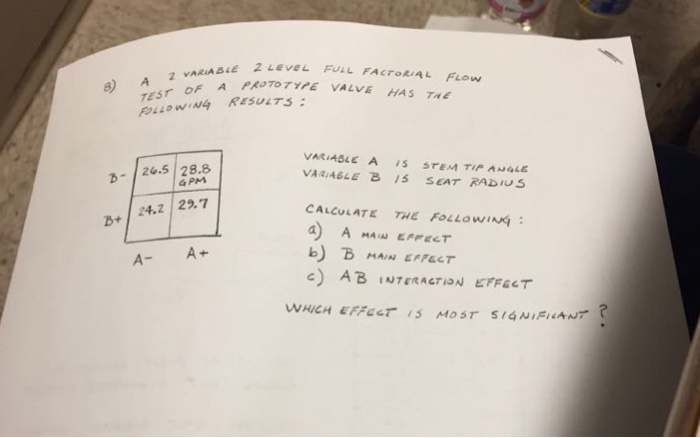 8) A 2 VARIABLE 2 LEVEL FULL FACTORIAL FLOW
TEST OF A PROTOTYPE VALVE HAS THE
FOLLOWING RESULTS:
B- 26.5 28.8
GPM
B+ 24.2 29.7
A- A+
VARIABLE A IS STEM TIP ANGLE
VARIABLE B IS SEAT RADIUS
CALCULATE THE FOLLOWING:
a) A MAIN EFFECT
b) B MAIN EFFECT
c) AB INTERACTION EFFECT
WHICH EFFECT IS MOST SIGNIFICANT?